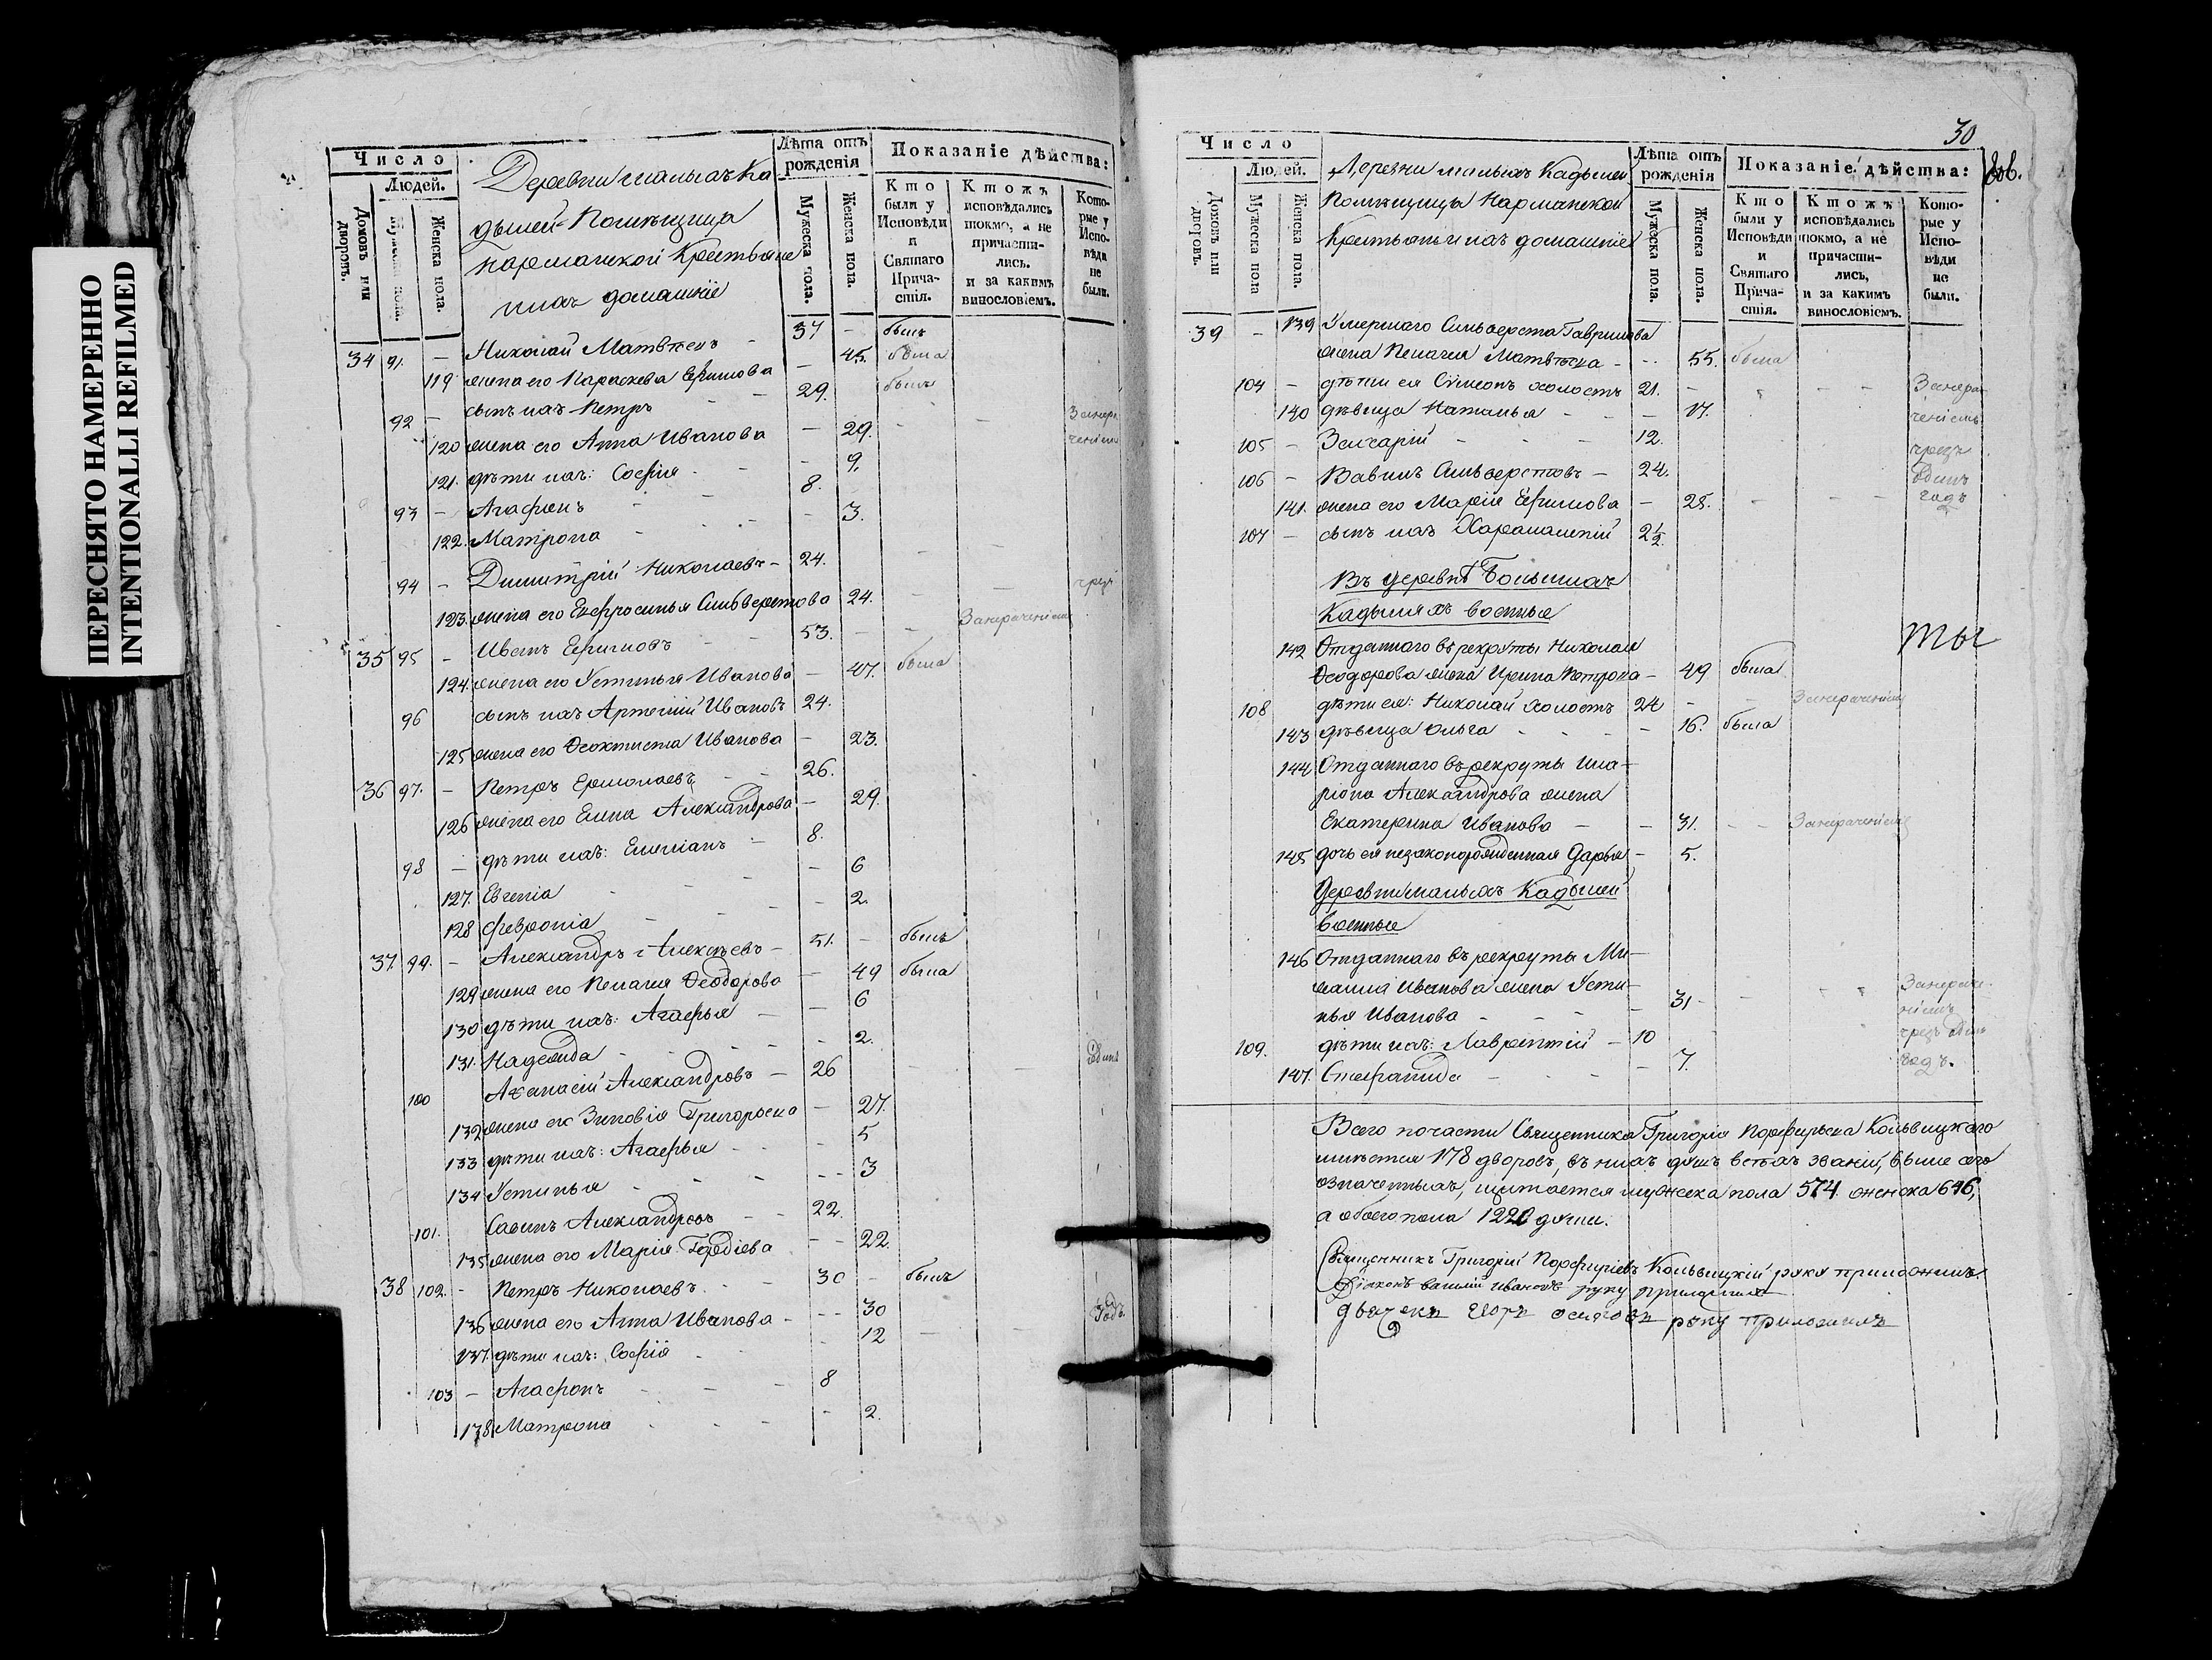 ПЕРЕСНЯТО НАМЕРЕННО
INTENTIONALLI REFILMED
Число
Людей.
Домовъ или дворовъ.
Мужеска пола.
Женска пола.
Деревни малыхъ Ка
дышей Помѣщицы
Нарманской Крестьяне
ихъ домашніе
Лѣта отъ рожденія
Мужеска пола.
Женска пола.
Показаніе дѣйства:
Кто были у Исповѣди и Святаго Причастія.
Ктожъ исповѣдались токмо, а не причастились. и за какимъ винословіемъ.
Которые у Исповѣди не были.
34 91. — Николай Матвѣевъ — 37 — былъ
119 жена его Параскева Ефимова — 45. была
92 — сынъ ихъ Петръ — 29. былъ
120 жена его Анна Иванова — 29. — —
121. дѣти ихъ: Софія — 9.
93 — Агафонъ 8.
122. Матрона — 3.
94 — Димитрій Николаевъ — 24.
123. жена его Евфросинья Сильверстова 24.
35 95 — Иванъ Ефимовъ 53. — — Занерачениемъ
124. жена его Устинья Иванова — 47. была
96 сынъ ихъ Артемій Ивановъ 24.
125 жена его Ѳеоктиста Иванова — 23.
36 97. — Петръ Ермолаевъ — 26.
126 жена его Елена Александрова — 29.
98 — дѣти ихъ: Емеліанъ — 8.
127. Евгенія — 6
128 Февронія — 2.
37. 99. — Александръ Алексѣевъ — 51. — былъ
129 жена его Пелагея Ѳеодорова — 49 была
130 дѣти ихъ: Агафья — 6
131. Надежда — 2.
100 Аѳанасій Александровъ — 26
132 жена его Зиновія Григорьева — 27.
133 дѣти ихъ: Агафья — 5
134 Устинья — 3
101. Савинъ Александровъ — 22.
135 жена его Марія Гордіева — 22.
38 102. — Петръ Николаевъ — 30 — былъ
136 жена его Анна Иванова — 30
137. дѣти ихъ: Софія — 12
103 — Агафонъ — 8
138 Матрона — 2.
Занера
ченіемъ
чрезъ
одинъ
годъ
30
Число
Людей.
Домовъ или дворовъ.
Мужеска пола
Женска пола.
Деревни малыхъ Кадышей
Помѣщицы Нарманской
Крестьяне ихъ домашніе
Лѣта отъ рожденія
Мужеска пола.
Женска пола.
Показаніе дѣйства:
Кто были у Исповѣди и Святаго Причастія.
Ктожъ исповѣдались токмо, а не причастились, и за какимъ винословіемъ.
Которые у Исповѣди не были.
39 — 139 Умершаго Сильверста Гаврилова
жена Пелагея Матвѣева — 55. была
104 — дѣти ея Симеонъ холостъ 21. — Занера
140 дѣвица Наталья — 17. ченіемъ
105 — Захарій — 12. чрезъ
106 — Вавилъ Сильверстовъ — 24. одинъ
141. жена его Марія Ефимова — 25. — годъ
107 — сынъ ихъ Харалампій 2½.
Въ деревнѣ Большихъ
Кадышахъ военные
142 Отданнаго въ рекруты Николая
Ѳеодорова жена Ирина Петрова — 49 была
108 дѣти ея: Николай холостъ 24 — Занерачениемъ
143 дѣвица Ольга — 16. была
144 Отданнаго въ рекруты Ила-
ріона Александрова жена
Екатерина Иванова — 31. — Занерачениемъ
145 дочь ея незаконорожденная Дарья — 5.
Деревни малыхъ Кадышей
военные
146 Отданнаго въ рекруты Ми-
хаила Иванова жена Усти- Занераче-
нья Иванова — 31 — ніемъ
109. дѣти ихъ: Лаврентій — 10 чрезъ одинъ
147. Стефанида — 7. годъ.
Всего почасти Священника Григорія Порфирьева Кольвицкаго
имѣется 178 дворовъ, въ нихъ душъ всѣхъ званій, выше сего
означенныхъ, щитается мужеска пола 574 женска 646,
а обоего пола 1220 душъ.
Священникъ Григорій Порфирьевъ Кольвицкій руку приложилъ
Діаконъ василій ивановъ руку приложилъ
дьячекъ егоръ осиповъ руку приложилъ
ты